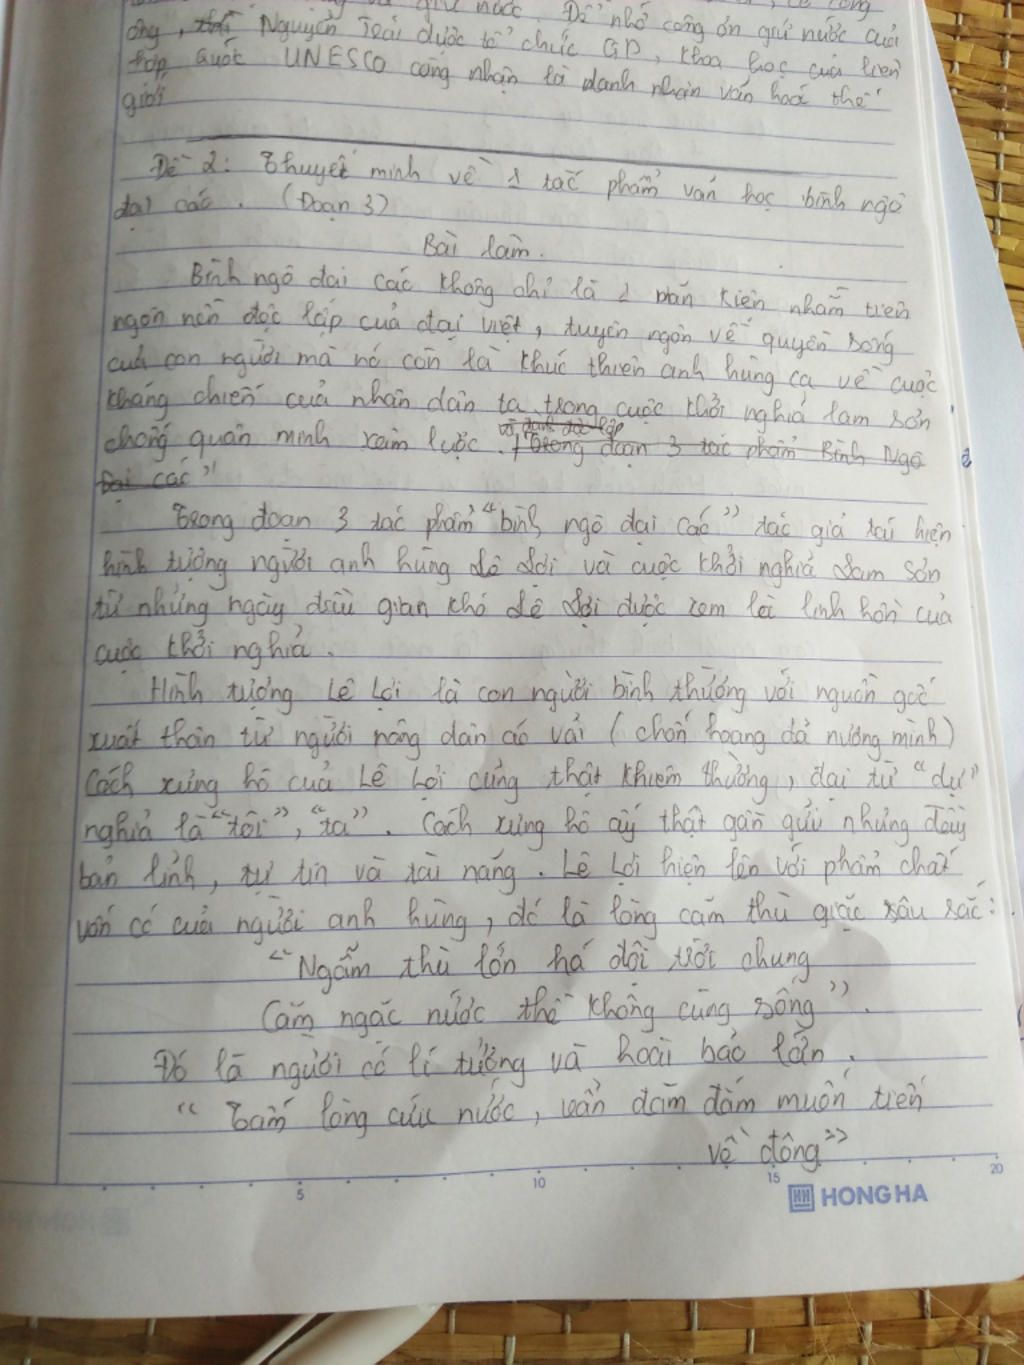 giữ nước. Để nhớ công ơn giữ nước của
ông, Nguyễn Trãi được tổ chức GD, khoa học của liên
hợp quốc UNESCO công nhận là danh nhân văn hoá thế
giới
Đề 2: Thuyết minh về 1 tác phẩm văn học bình ngô
đại cáo. (Đoạn 3)
Bài làm.
Bình ngô đại cáo không chỉ là 1 văn kiện nhằm tuyên
ngôn nền độc lập của đại việt, tuyên ngôn về quyền sống
của con người mà nó còn là khúc thiên anh hùng ca về cuộc
kháng chiến của nhân dân ta trong cuộc khởi nghĩa lam sơn
chống quân minh xâm lược. Trong đoạn 3 tác phẩm Bình Ngô
Đại cáo"
Trong đoạn 3 tác phẩm "bình ngô đại cáo" tác giả tái hiện
hình tượng người anh hùng Lê Lợi và cuộc khởi nghĩa Lam Sơn
từ những ngày đầu gian khó Lê Lợi được xem là linh hồn của
cuộc khởi nghĩa.
Hình tượng Lê Lợi là con người bình thường với nguồn gốc
xuất thân từ người nông dân áo vải (chốn hoang dã nương mình)
Cách xưng hô của Lê Lợi cũng thật khiêm nhường, đại từ "dư"
nghĩa là "tôi", "ta". Cách xưng hô ấy thật gần gửi nhưng đầy
bản lĩnh, tự tin và tài năng. Lê Lợi hiện lên với phẩm chất
vốn có của người anh hùng, đó là lòng căm thù giặc sâu sắc:
"Ngẫm thù lớn há đội trời chung
Căm ngặc nước thề không cùng sống".
Đó là người có lí tưởng và hoài bảo lớn.
"Tấm lòng cứu nước, vẫn đăm đắm muốn tiến
về đông"
5 10 15 20
HONG HA